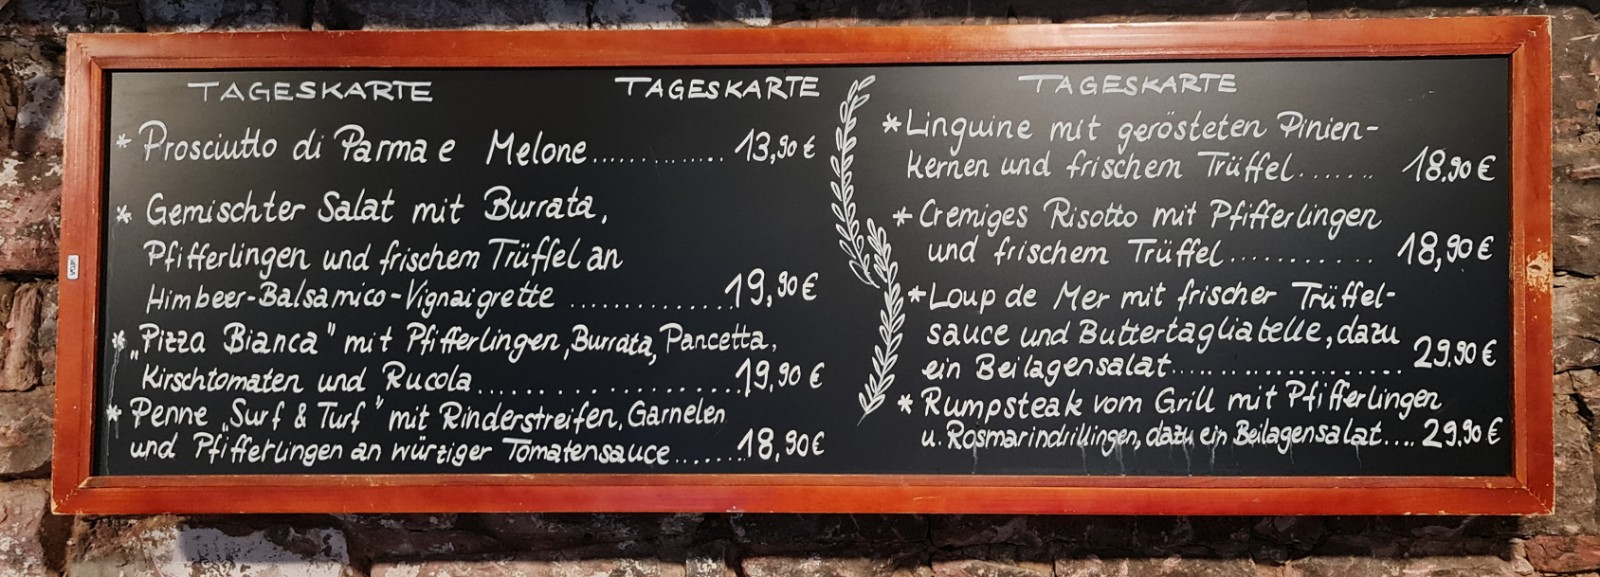 TAGESKARTE TAGESKARTE
* Prosciutto di Parma e Melone.............. 13,90 €
* Gemischter Salat mit Burrata,
Pfifferlingen und frischem Trüffel an
Himbeer-Balsamico-Vignaigrette .................. 19,90 €
* „Pizza Bianca" mit Pfifferlingen, Burrata, Pancetta,
Kirschtomaten und Rucola........................ 19,90 €
* Penne „Surf & Turf" mit Rinderstreifen, Garnelen
und Pfifferlingen an würziger Tomatensauce....... 18,90 €
TAGESKARTE
* Linguine mit gerösteten Pinien-
kernen und frischem Trüffel....... 18,90 €
* Cremiges Risotto mit Pfifferlingen
und frischem Trüffel............ 18,90 €
* Loup de Mer mit frischer Trüffel-
sauce und Buttertagliatelle, dazu
ein Beilagensalat...................... 29,90 €
* Rumpsteak vom Grill mit Pfifferlingen
u. Rosmarindrillingen, dazu ein Beilagensalat.... 29,90 €